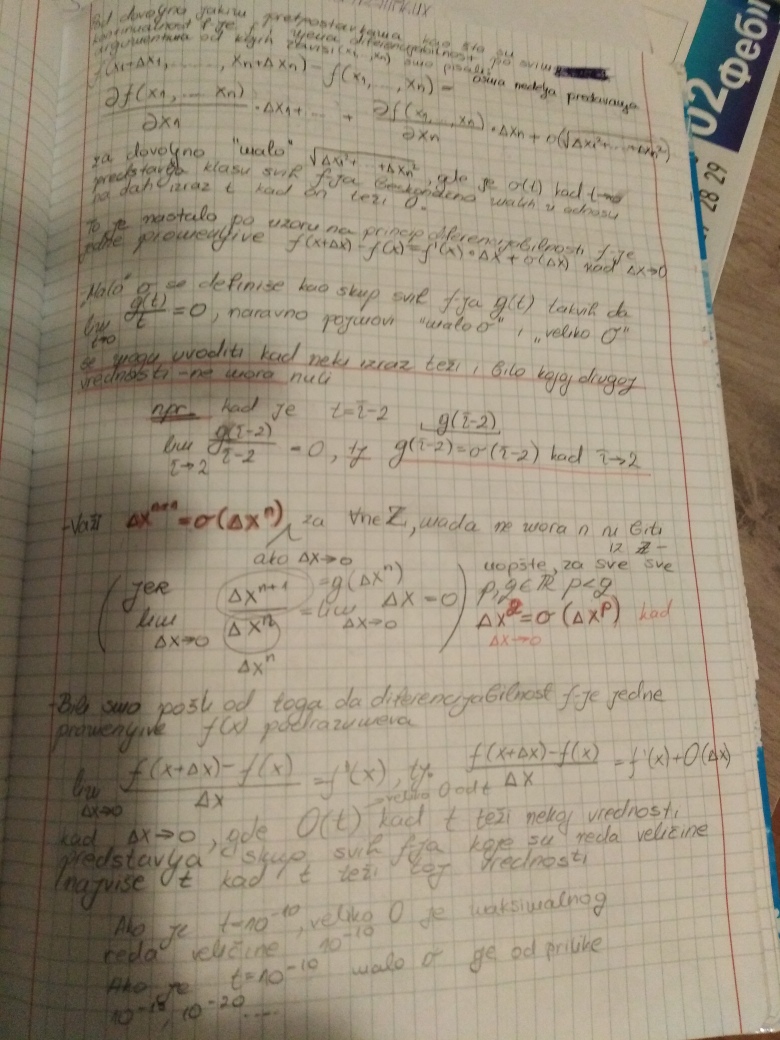 Pod dovoljno jakim pretpostavkama kao što su
kontinualnost f-je, diferencijabilnost po svim
argumentima od kojih zavisi (x₁, xₙ) smo pisali:
f(x₁+Δx₁, ......, xₙ+Δxₙ) - f(x₁, ..., xₙ) = osma nedelja predavanja
∂f(x₁, ... xₙ)/∂x₁ · Δx₁ + ... + ∂f(x₁, ..., xₙ)/∂xₙ · Δxₙ + σ(√Δx₁²+...+Δxₙ²)
za dovoljno "malo" √Δx₁²+...+Δxₙ², gde je σ(t) kad t→0
predstavlja klasu svih f-ja beskonačno malih u odnosu
na dati izraz t kad on teži 0.
To je nastalo po uzoru na princip diferencijabilnosti f-je
jedne promenljive f(x+Δx)-f(x)=f'(x)·Δx+σ(Δx) kad Δx→0
"Malo" σ se definiše kao skup svih f-ja g(t) takvih da
lim t→0 g(t)/t = 0, naravno pojmovi "malo σ" i "veliko O"
se mogu uvoditi kad neki izraz teži i bilo kojoj drugoj
vrednosti - ne mora nuli
npr. kad je t=τ-2
lim τ→2 g(τ-2)/τ-2 = 0, tj g(τ-2)=σ(τ-2) kad τ→2
-Važi Δxⁿ⁺¹=σ(Δxⁿ), za ∀n∈Z, mada ne mora n ni biti
ako Δx→0 iz Z-
uopšte, za sve sve
(jer Δxⁿ⁺¹=g(Δxⁿ) p,q∈R p<q
lim Δx→0 Δxⁿ⁺¹/Δxⁿ = lim Δx→0 Δx=0) Δx^q=σ(Δx^p) kad
Δxⁿ Δx→0
-Bili smo pošli od toga da diferencijabilnost f-je jedne
promenljive f(x) podrazumeva
lim Δx→0 f(x+Δx)-f(x)/Δx = f'(x), tj. f(x+Δx)-f(x)/Δx = f'(x)+O(Δx)
veliko O od t
kad Δx→0, gde O(t) kad t teži nekoj vrednosti
predstavlja skup svih f-ja koje su reda veličine
najviše t kad t teži toj vrednosti
Ako je t=10⁻¹⁰, veliko O je maksimalnog
reda veličine 10⁻¹⁰
Ako je t=10⁻¹⁰ malo σ je od prilike
10⁻²⁰....
02 Феб
28 29